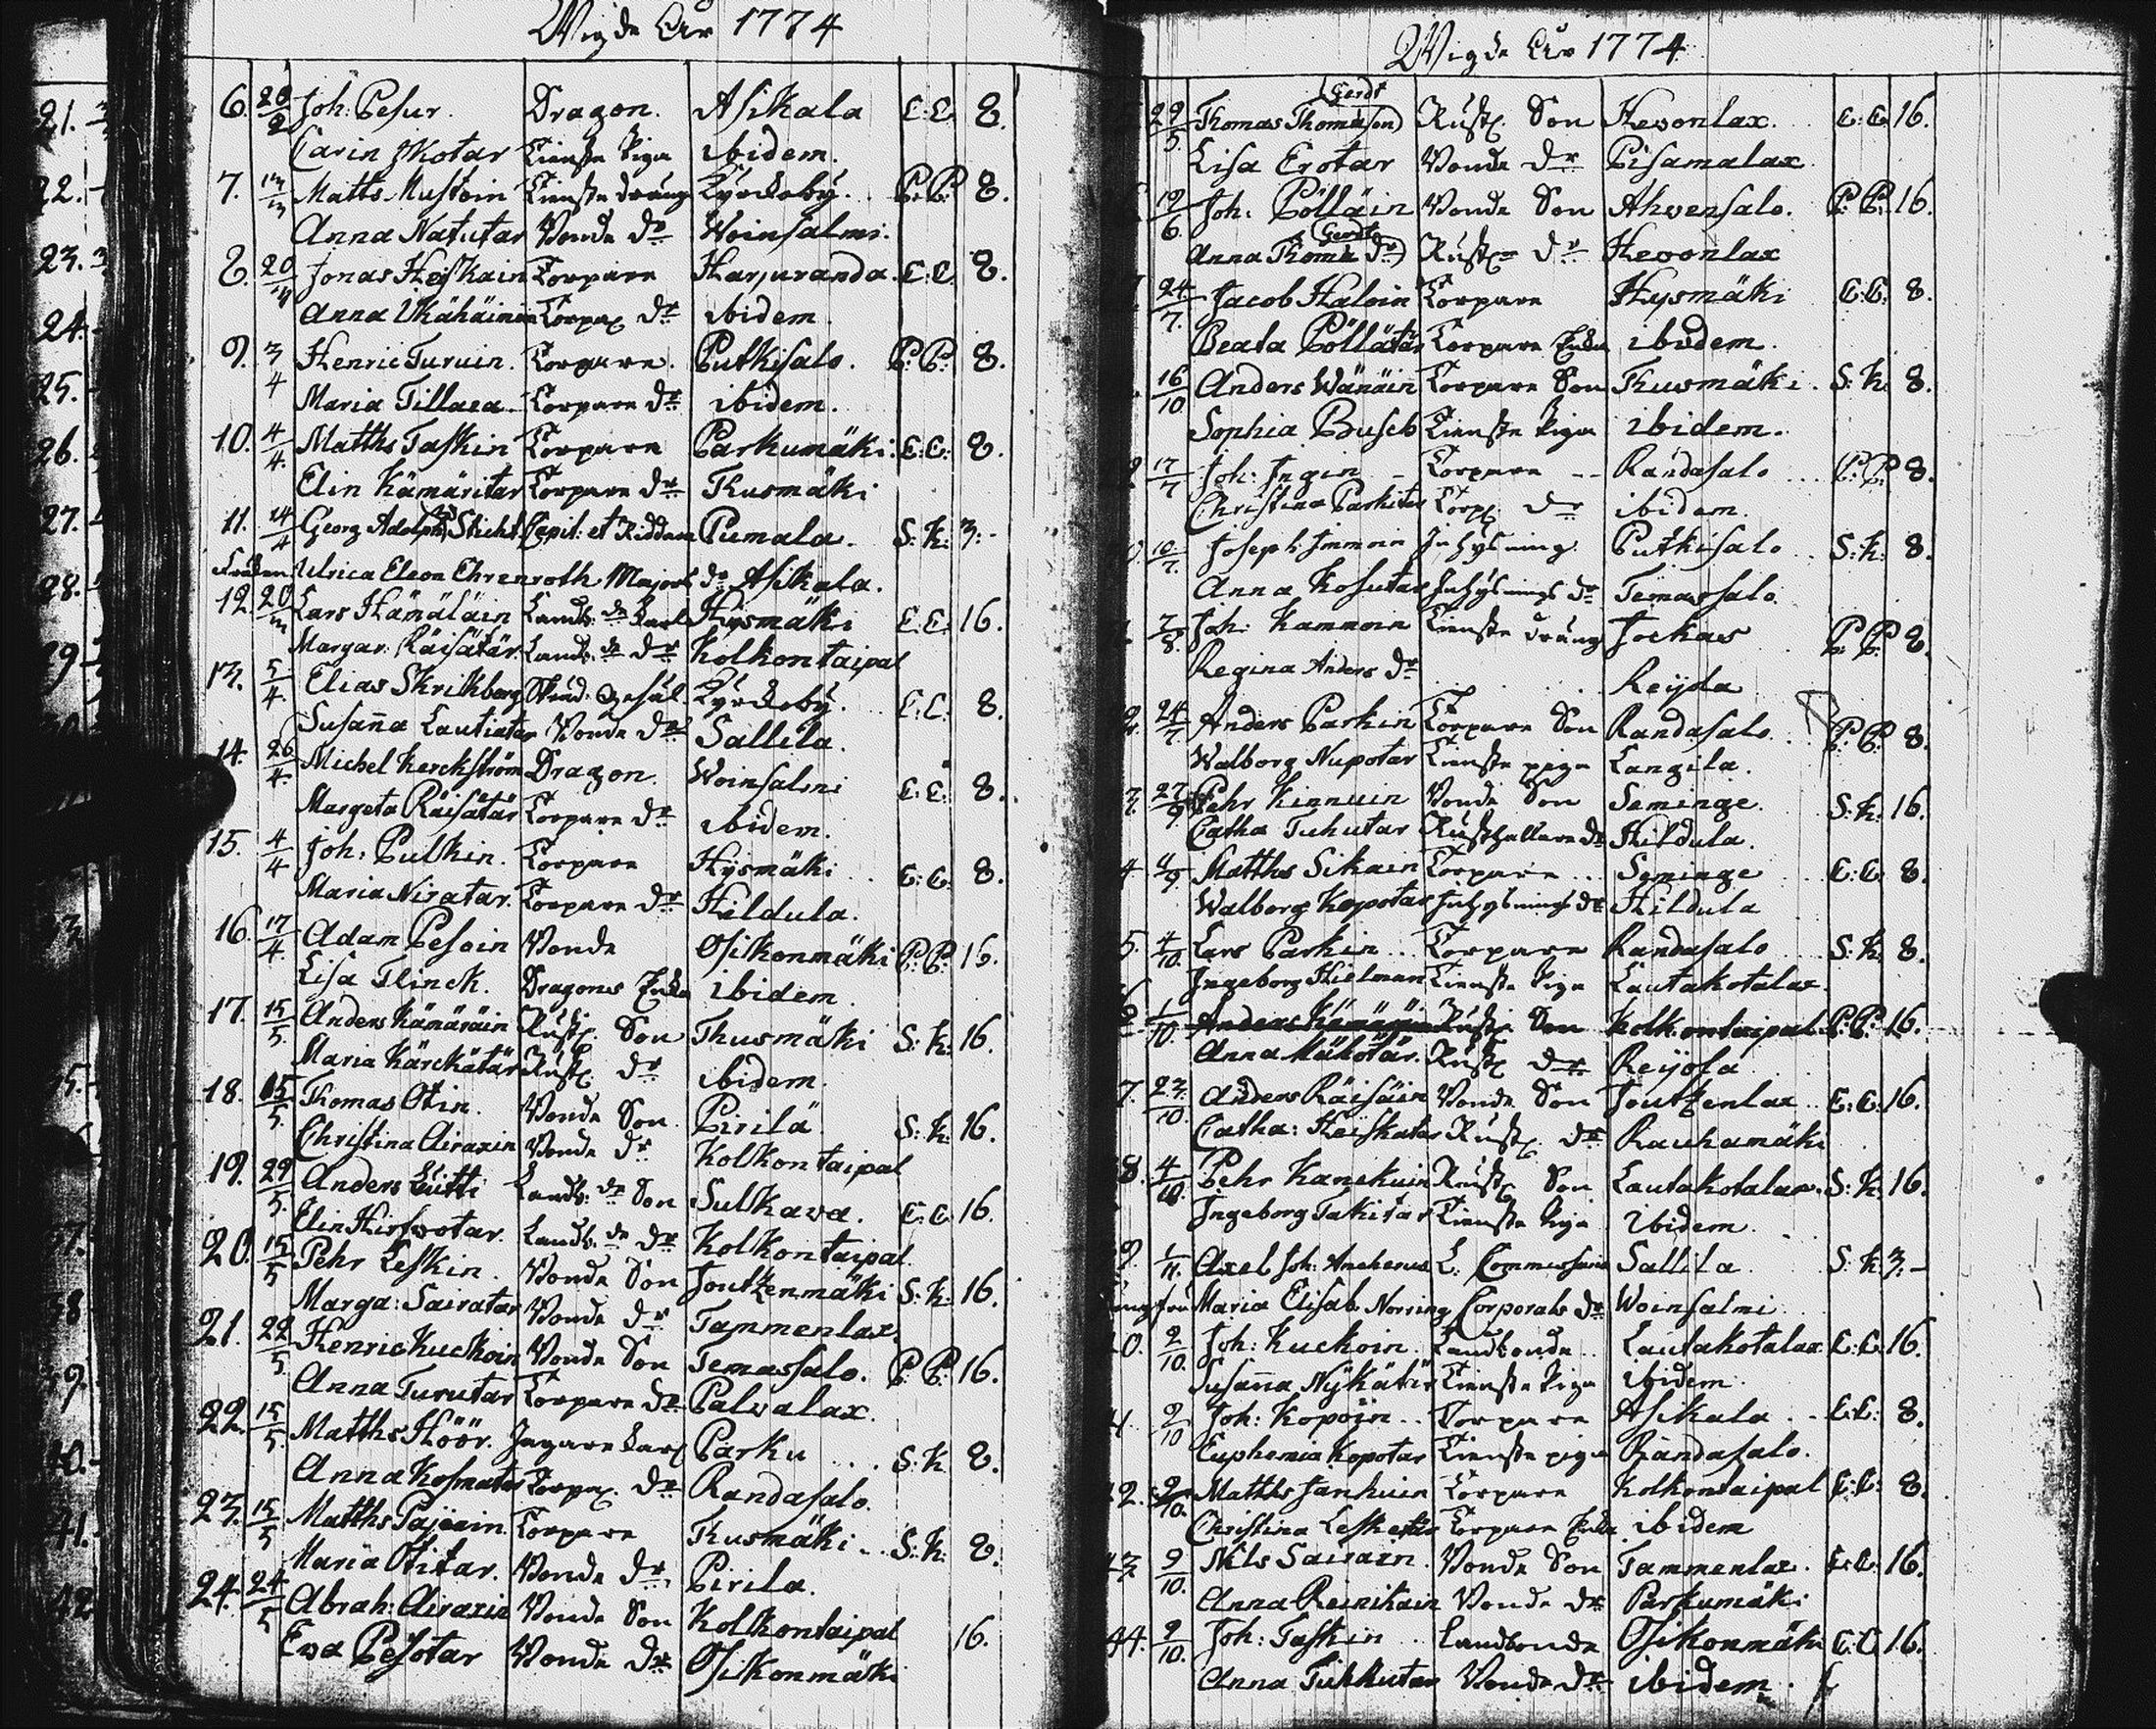 Wigde Åhr 1774
6. 20/2 Joh: Pesur. Dragon. Asikala C:C. 8.
Carin Ikotar Tienste Piga ibidem.
7. 13/3 Matts Mustoin Tienste dräng Kyrckoby. P:P. 8.
Anna Natutar Bonde Dr Woinsalmi.
8. 20/4 Jonas Heiskain Torpare Harjuranda. C:C. 8.
Anna Ukähäinen Torpar Dr ibidem
9. 3/4 Henric Turuin. Torpare. Putkisalo. P:P. 8.
Maria Tillaea Torpare Dr ibidem.
10. 4/4. Matths Taskin Torpare Parkumäki: C:C: 8.
Elin Kämäritar Torpare Dr Thusmäki
11. 14/4 Georg Adolph Sticht Capit: et Riddare Pumala. S:K: 3:-
Fröken Ulrica Eleon Ehrenroth Majors dr Asikala.
12. 20/3 Lars Hämäläin Landb. de Karl Hysmäki C:C: 16.
Margar: Räisätär Landb. de Dr Kolkontaipal
13. 5/4. Elias Skrikberg Skräd: Gesäl Kyrckoby. C:C: 8.
Susaña Lautiatar Bonde Dr Sallila.
14. 26/4. Michel Kerckström Dragon. Woinsalmi C:C: 8.
Margeta Räisätär Torpare Dr ibidem.
15. 4/4 Joh: Pulkin. Torpare Hysmäki C:C: 8.
Maria Niratar. Torpare Dr Hildula.
16. 17/4. Adam Pesoin Bonde Osikonmäki P:P: 16.
Lisa Flinck. Dragons Enka ibidem
17. 15/5. Anders Kämäräin Rust. Son Thusmäki S:K: 16.
Maria Kärckätär Rust. Dr ibidem.
18. 15/5. Thomas Otin. Bonde Son Pirilä S:K: 16.
Christina Airaxin Bonde Dr Kolkontaipal
19. 29/5. Anders Luitti Landb. de Son Sulkava. C:C. 16.
Elin Hirfwotar. Landb. de Dr Kolkontaipal.
20. 15/5 Pehr Leskin. Bonde Son Joutzenmäki S:K: 16.
Marga: Sairatar Bonde Dr Tammenlax.
21. 22/5 Henric Kuckoin Bonde Son Temassalo. P:P: 16.
Anna Turutar Torpare Dr Palvalax.
22. 15/5. Matths Höör. Jägare Karl Parku S:K 8.
Anna Kosmatar Torpar. Dr Randasalo.
23. 15/5 Matths Pajoain. Torpare Thusmäki S:K: 8.
Maria Otitar. Bonde Dr Pirila.
24. 24/5 Abrah: Airaxin Bonde Son Kolkontaipal 16.
Ewa Pesotar Bonde Dr Osikonmäki
Wigde Åhr 1774.
29/5. Thomas Thomasson Gerdt Rust. Son Hevonlax. C:C. 16.
Lisa Erotar Bonde Dr Pisamalax
19/6. Joh: Pölläin Bonde Son Ahvensalo. P:P. 16.
Anna Thoma Dr Gerdt Rust. Dr Hevonlax
24/7. Jacob Haloin Torpare Hysmäki C:C: 8.
Beata Pöllätär Torpare Enka ibidem
16/10 Anders Wänäin Torpare Son Thusmäki. S:K: 8.
Sophia Busch Tienste Piga ibidem.
17/7 Joh: Ingin Torpare Randasalo P:P. 8.
Christina Parkitar Torp. Dr ibidem.
10/7. Joseph Immoin Inhysning. Putkisalo S:K: 8.
Anna Kosutar Inhysnings Dr Temassalo.
7/8. Joh: Kammoin Tienste dräng Jockas P:P. 8.
Regina Anders Dr Reijola
24/7. Anders Parkin Torpare Son Randasalo P:P. 8.
Walborg Nupotar Tienste piga Langila.
27/9 Pehr Kinnuin Bonde Son Seminge. S:K: 16.
Catha Tuhutar Rusthållare Dr Hildula.
4 4/9. Matths Sikain Torpare Seminge C:C. 8.
Walborg Kopotar Inhysnings dr Hildula
5. 4/10. Lars Parkin Torpare Randasalo S:K. 8.
Ingeborg Hielman Tienste Piga Lautakotalax.
6 1/10. Anders Kämäräin Rust. Son Kolkontaipal P:P: 16.
Anna Mäkötär. Rust. Dr Reijola
7. 23/10. Anders Räisäin Bonde Son Joutzenlax C:C: 16.
Catha: Heiskatar Rust. Dr Rauhamäki
8. 4/10. Pehr Kanckuin Rust. Son Lautakotalax. S:K: 16.
Ingeborg Takitar Tienste Piga ibidem.
9. 1/11. Axel Joh: Ancherus L. Commissarie Sallila S:K: 3:-
Jungfru Maria Elisab. Norring Corporals Dr Woinsalmi
0. 2/10. Joh: Kuckoin. Landbonde Lautakotalax C:C. 16.
Susaña Nykätär Tienste Piga ibidem
2/10 Joh: Kopoin Torpare Asikala C:C: 8.
Euphemia Kopotar Tienste piga Randasalo.
42. 2/10. Matths Janhuin Torpare Kolkontaipal C:C: 8.
Christina Lesketär Torpare Enka ibidem
43 9/10. Nils Sairain. Bonde Son Tammenlax. C:C. 16.
Anna Reinikain Bonde Dr Parkumäki
44. 9/10. Joh: Taskin Landbonde Osikonmäki C:C 16.
Anna Tukkutar Bonde Dr ibidem.